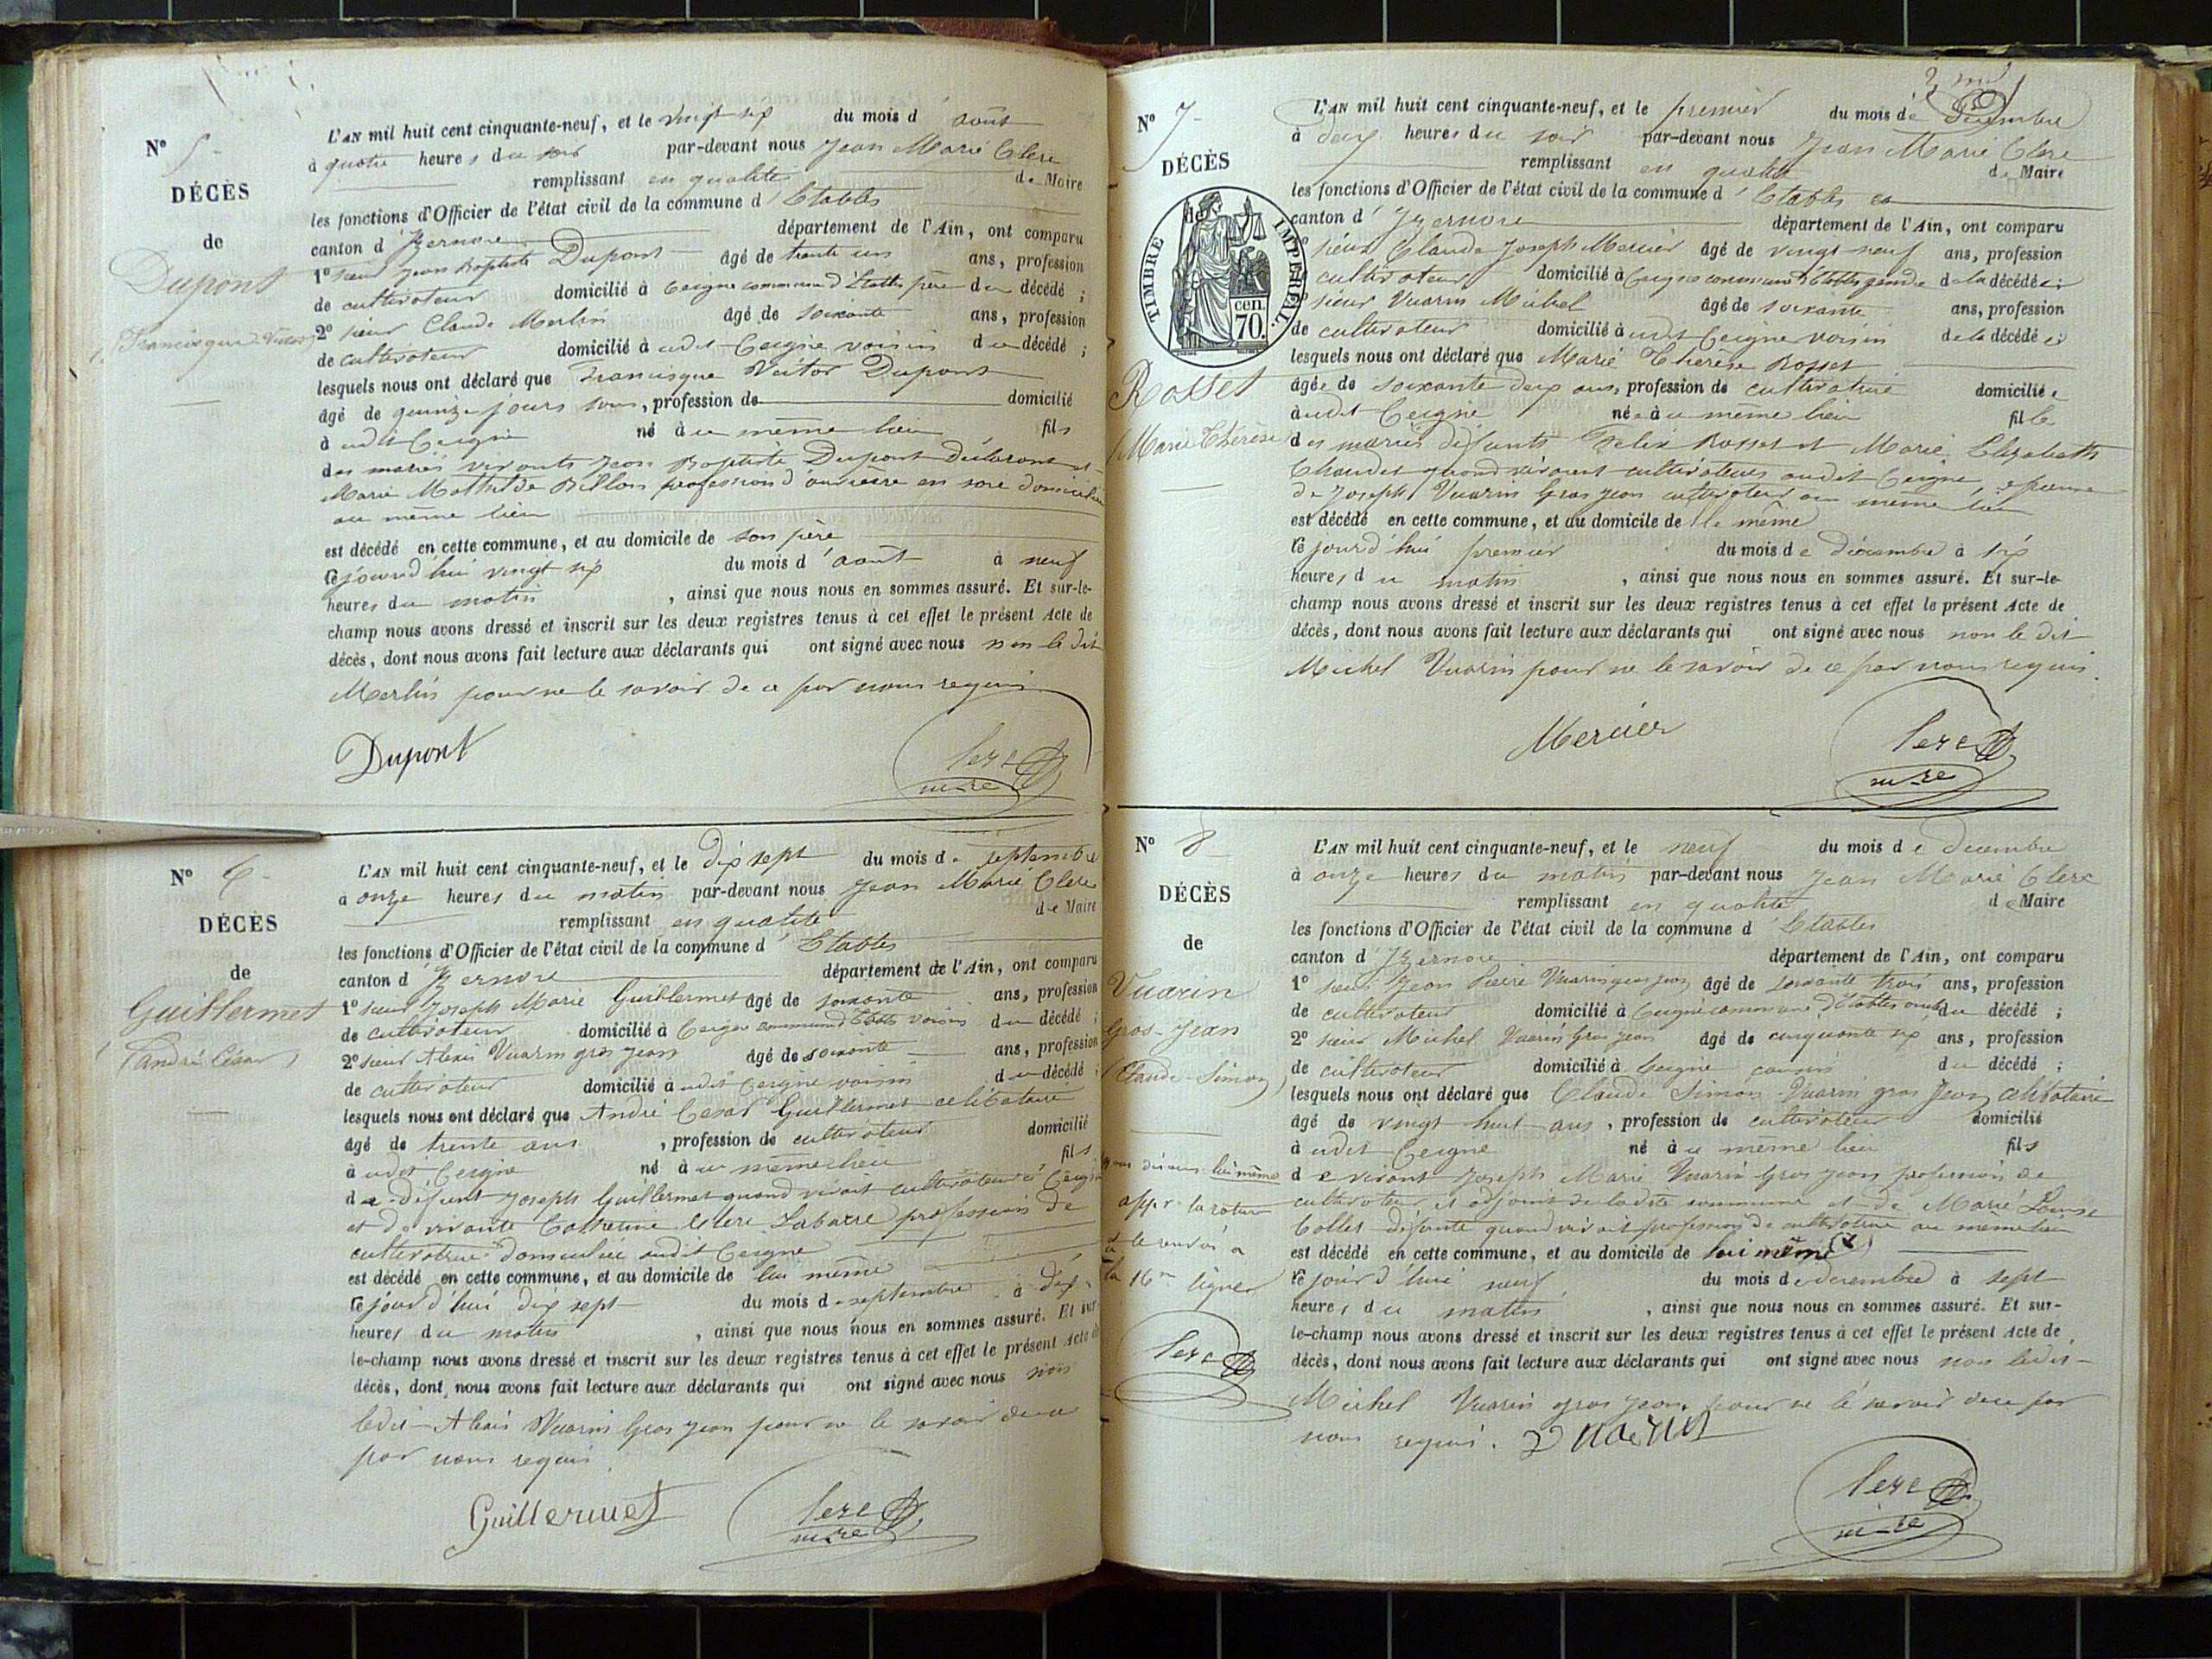 N° 5
DÉCÈS
de
Dupont
Francisque Victor
L'AN mil huit cent cinquante-neuf, et le vingt six du mois d'août
à quatre heures du soir par-devant nous Jean Marie Clerc
remplissant en qualité de Maire
les fonctions d'Officier de l'état civil de la commune d'Etables
canton d'Izernore département de l'Ain, ont comparu
1° sieur Jean Baptiste Dupont âgé de trente un ans, profession
de cultivateur domicilié à Ceigne commune d'Etables père du décédé ;
2° sieur Claude Merlin âgé de soixante ans, profession
de cultivateur domicilié à udit Ceigne voisin du décédé ;
lesquels nous ont déclaré que Francisque Victor Dupont
âgé de quinze jours , profession de domicilié
à udit Ceigne né à u même lieu fils
des mariés vivants Jean Baptiste Dupont déclarant et
Marie Mathilde Billon profession d'ouvrière en soie domiciliée
au même lieu
est décédé en cette commune, et au domicile de son père
cejourd'hui vingt six du mois d'août à neuf
heures du matin , ainsi que nous nous en sommes assuré. Et sur-le-
champ nous avons dressé et inscrit sur les deux registres tenus à cet effet le présent Acte de
décès, dont nous avons fait lecture aux déclarants qui ont signé avec nous non le dit
Merlin pour ne le savoir de ce par nous requis
Dupont
Clerc
mre
N° 6
DÉCÈS
de
Guillermet
(André César)
L'AN mil huit cent cinquante-neuf, et le dix sept du mois de septembre
à onze heures du matin par-devant nous Jean Marie Clerc
remplissant en qualité de Maire
les fonctions d'Officier de l'état civil de la commune d'Etables
canton d'Izernore département de l'Ain, ont comparu
1° sieur Joseph Marie Guillermet âgé de soixante ans, profession
de cultivateur domicilié à Ceigne commune d'Etables voisin du décédé ;
2° sieur Alexis Vuarin gros Jean âgé de soixante ans, profession
de cultivateur domicilié à udit Ceigne voisin du décédé ;
lesquels nous ont déclaré que André Cesar Guillermet célibataire
âgé de trente ans , profession de cultivateur domicilié
à udit Ceigne né à u même lieu fils
de défunt Joseph Guillermet quand vivait cultivateur à Ceigne
et de vivante Catherine Clerc Labarre profession de
cultivatrice domiciliée audit Ceigne
est décédé en cette commune, et au domicile de lui même
cejourd'hui dix sept du mois de septembre à dix
heures du matin , ainsi que nous nous en sommes assuré. Et sur-
le-champ nous avons dressé et inscrit sur les deux registres tenus à cet effet le présent Acte de
décès, dont nous avons fait lecture aux déclarants qui ont signé avec nous non
ledit Alexis Vuarin Gros Jean pour ne le savoir de ce
par nous requis
Guillermet
Clerc
mre
N° 7
DÉCÈS
de
TIMBRE IMPERIAL
cen. 70.
Rosset
(Marie Thérèse)
L'AN mil huit cent cinquante-neuf, et le premier du mois de Décembre
à deux heures du soir par-devant nous Jean Marie Clerc
remplissant en qualité de Maire
les fonctions d'Officier de l'état civil de la commune d'Etables
canton d'Izernore département de l'Ain, ont comparu
1° sieur Claude Joseph Mercier âgé de vingt neuf ans, profession
de cultivateur domicilié à Ceigne commune d'Etables gendre de la décédée ;
2° sieur Vuarin Michel âgé de soixante ans, profession
de cultivateur domicilié à udit Ceigne voisin de la décédée ;
lesquels nous ont déclaré que Marie Thérèse Rosset
âgée de soixante deux ans, profession de cultivatrice domiciliée
à udit Ceigne née à u même lieu fille
des mariés défunts Felix Rosset et Marie Elisabeth
Chaudet quand vivaient cultivateurs audit Ceigne, épouse
de Joseph Vuarin Gros Jean cultivateur au même lieu
est décédé en cette commune, et au domicile de le même
cejourd'hui premier du mois de Décembre à six
heures du matin , ainsi que nous nous en sommes assuré. Et sur-le-
champ nous avons dressé et inscrit sur les deux registres tenus à cet effet le présent Acte de
décès, dont nous avons fait lecture aux déclarants qui ont signé avec nous non le dit
Michel Vuarin pour ne le savoir de ce par nous requis.
Mercier
Clerc
mre
N° 8
DÉCÈS
de
Vuarin
Gros-Jean
(Claude Simon)
L'AN mil huit cent cinquante-neuf, et le neuf du mois de decembre
à onze heures du matin par-devant nous Jean Marie Clerc
remplissant en qualité de Maire
les fonctions d'Officier de l'état civil de la commune d'Etables
canton d'Izernore département de l'Ain, ont comparu
1° sieur Jean Pierre Vuarin gros Jean âgé de soixante trois ans, profession
de cultivateur domicilié à Ceigne commune d'Etables oncle du décédé ;
2° sieur Michel Vuarin Gros Jean âgé de cinquante six ans, profession
de cultivateur domicilié à Ceigne cousin du décédé ;
lesquels nous ont déclaré que Claude Simon Vuarin gros Jean célibataire
âgé de vingt huit ans , profession de cultivateur domicilié
à udit Ceigne né à u même lieu fils
de vivant Joseph Marie Vuarin Gros Jean profession de
cultivateur et adjoint de ladite commune et de Marie Louise
Collet défunte quand vivait profession de cultivatrice au même lieu
est décédé en cette commune, et au domicile de lui même (x)
cejourd'hui neuf du mois de decembre à sept
heures du matin , ainsi que nous nous en sommes assuré. Et sur-
le-champ nous avons dressé et inscrit sur les deux registres tenus à cet effet le présent Acte de
décès, dont nous avons fait lecture aux déclarants qui ont signé avec nous non ledit
Michel Vuarin gros Jean, pour ne le savoir de ce par
nous requis. Vuarin
Clerc
mre
nous disons lui même
appr la rature
et le renvoi a
la 16me ligne
Clerc